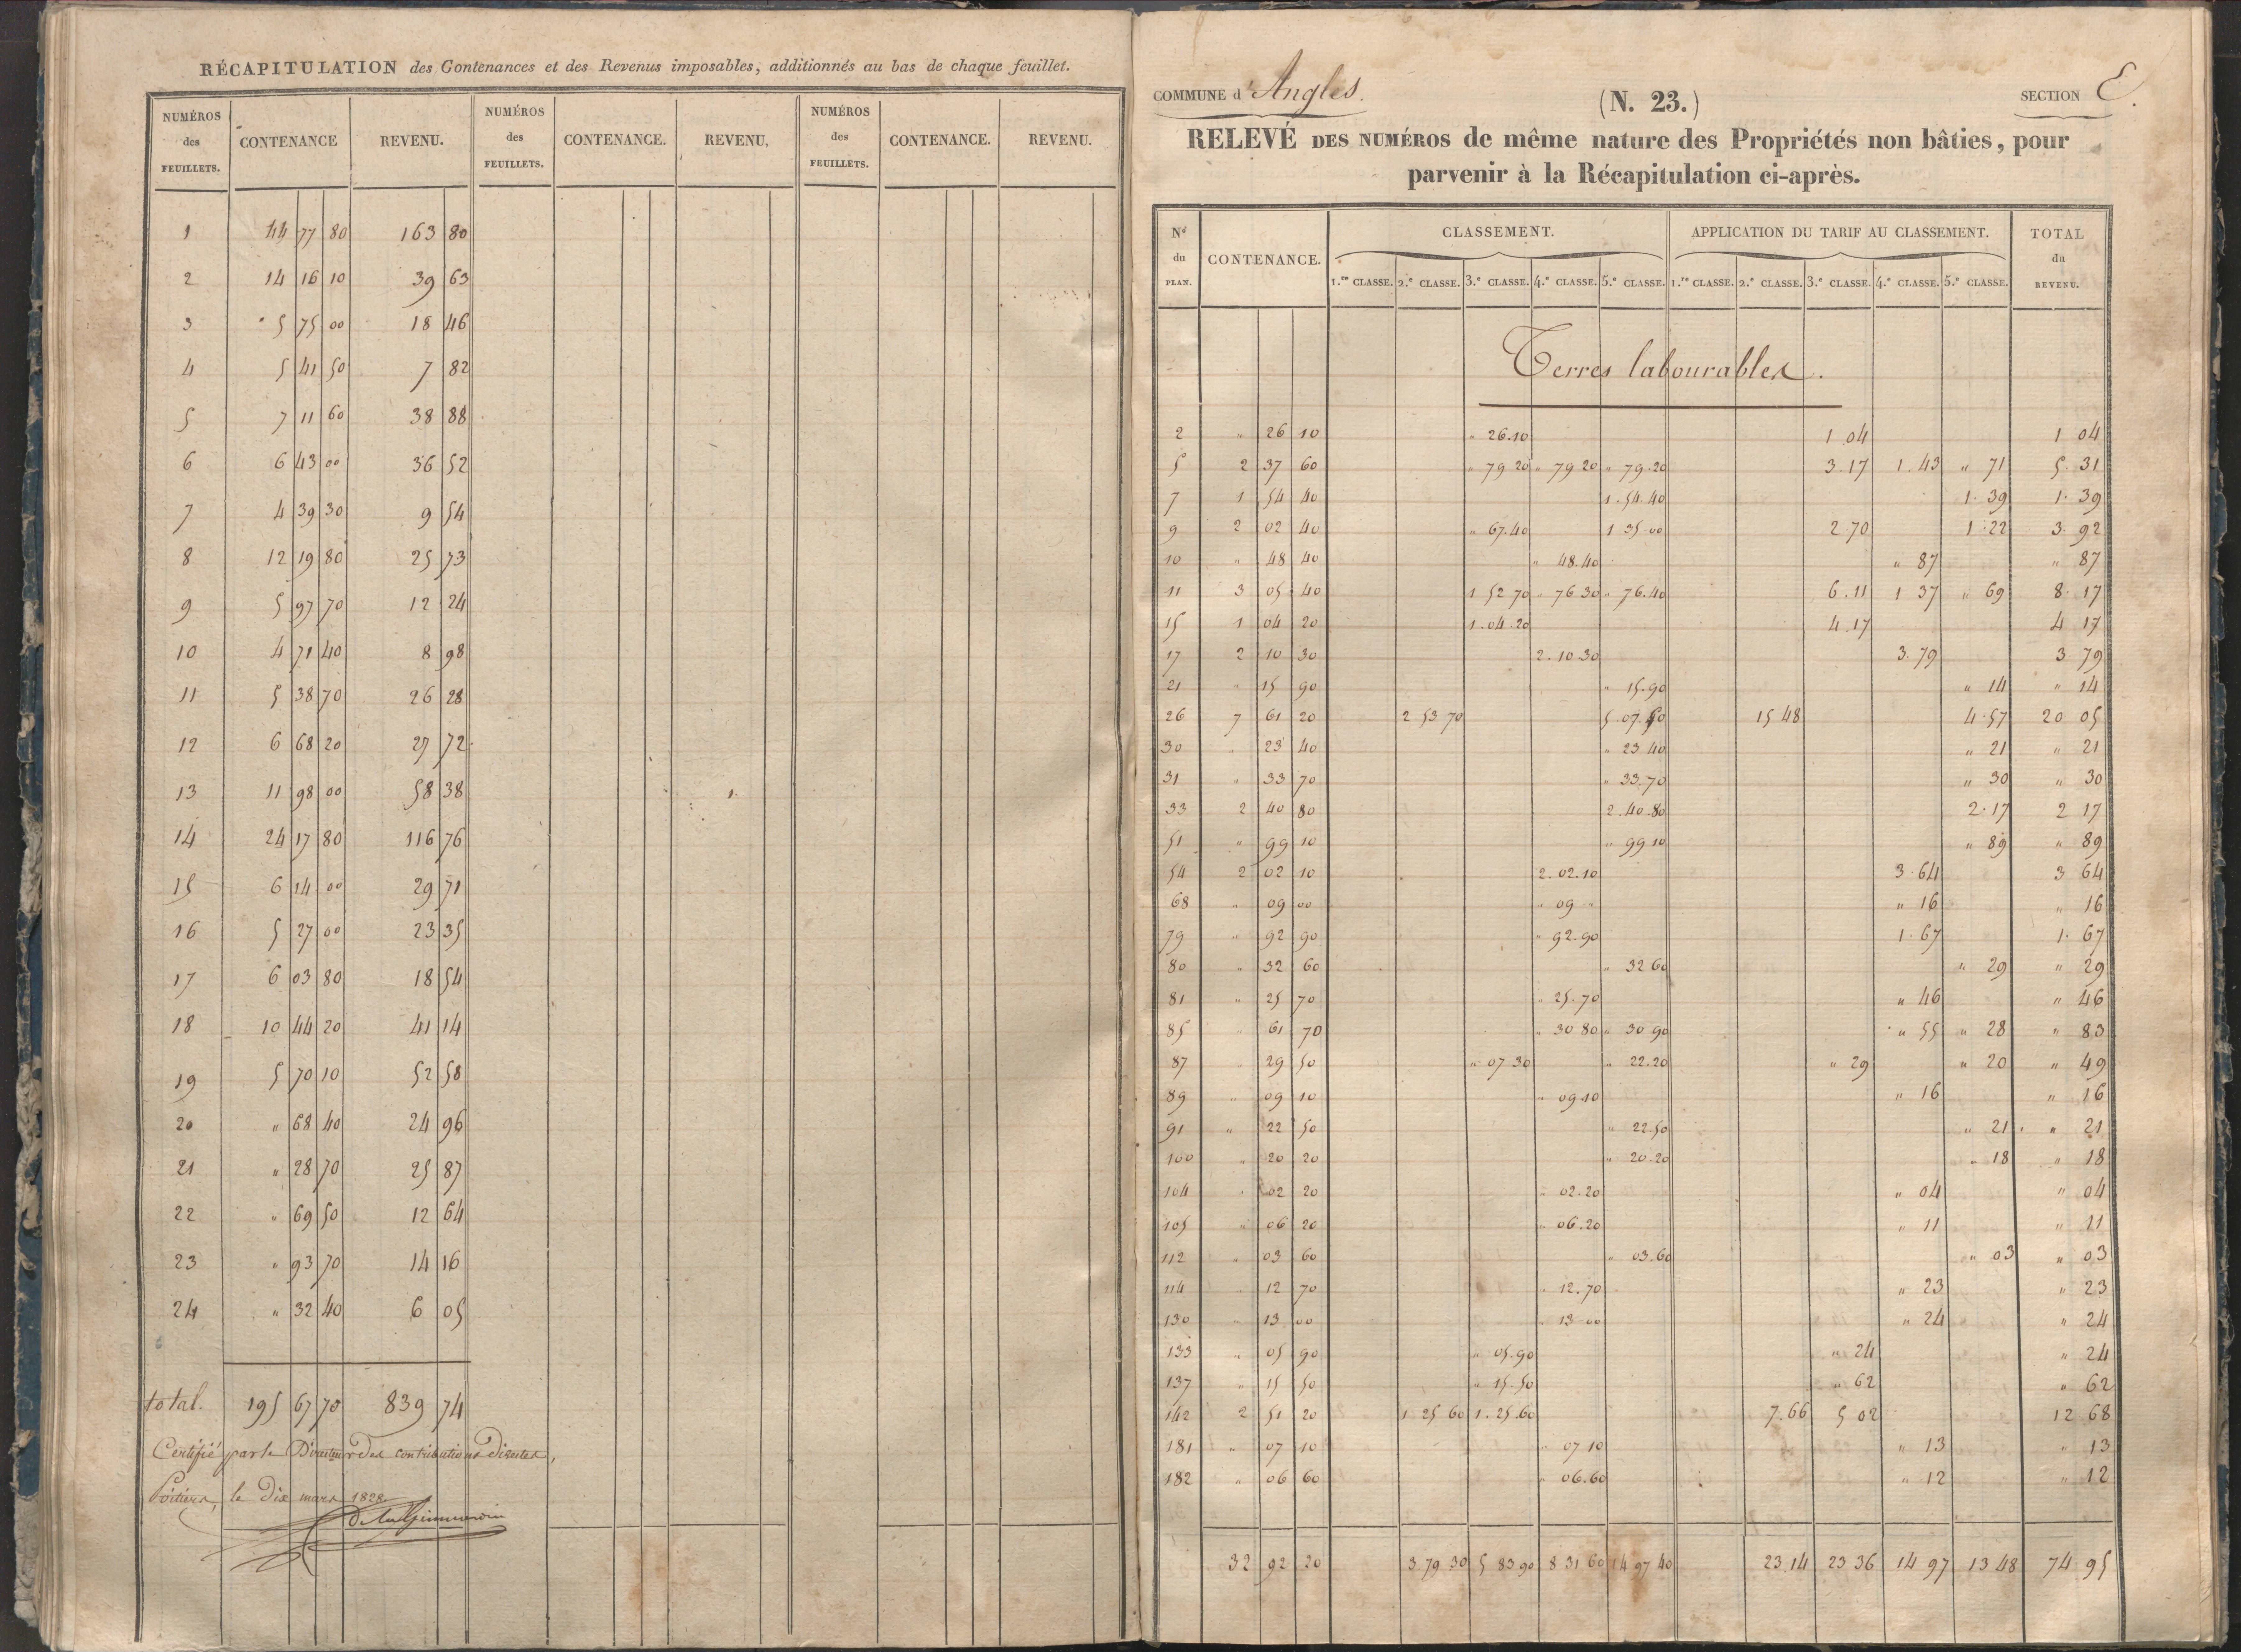 RÉCAPITULATION des Contenances et des Revenus imposables, additionnés au bas de chaque feuillet.
NUMÉROS des FEUILLETS. CONTENANCE REVENU. NUMÉROS des FEUILLETS. CONTENANCE. REVENU, NUMÉROS des FEUILLETS. CONTENANCE. REVENU.
1 44 77 80 163 80
2 14 16 10 39 63
3 5 75 00 18 46
4 5 41 50 7 82
5 7 11 60 38 88
6 6 43 00 36 52
7 4 39 30 9 54
8 12 19 80 25 73
9 5 97 70 12 24
10 4 71 40 8 98
11 5 38 70 26 28
12 6 68 20 27 72
13 11 98 00 58 38
14 24 17 80 116 76
15 6 14 00 29 71
16 5 27 00 23 35
17 6 03 80 18 54
18 10 44 20 41 14
19 5 70 10 52 58
20 " 68 40 24 96
21 " 28 70 25 87
22 " 69 50 12 64
23 " 93 70 14 16
24 " 32 40 6 05
total. 195 67 70 839 74
Certifié par le Directeur des contributions directes,
Poitiers, le dix mars 1828.
COMMUNE d'Angles. (N. 23.) SECTION E.
RELEVÉ DES NUMÉROS de même nature des Propriétés non bâties, pour
parvenir à la Récapitulation ci-après.
Nº du PLAN. CONTENANCE. CLASSEMENT. APPLICATION DU TARIF AU CLASSEMENT. TOTAL du REVENU.
1.re CLASSE. 2.e CLASSE. 3.e CLASSE. 4.e CLASSE. 5.e CLASSE. 1.re CLASSE. 2.e CLASSE. 3.e CLASSE. 4.e CLASSE. 5.e CLASSE.
Terres labourables.
2 " 26 10 " 26.10 1 04 1 04
5 2 37 60 " 79 20 " 79 20 " 79.20 3.17 1.43 " 71 5.31
7 1 54 40 1.54.40 1.39 1.39
9 2 02 40 " 67.40 1 35.00 2.70 1.22 3.92
10 " 48 40 " 48.40 " 87 " 87
11 3 05 40 1 52 70 " 76 30 " 76.40 6.11 1 37 " 69 8.17
15 1 04 20 1.04.20 4.17 4 17
17 2 10 30 2.10 30 3.79 3 79
21 " 15 90 " 15.90 " 14 " 14
26 7 61 20 2 53 70 5.07.50 15 48 4.57 20 05
30 " 23 40 " 23 40 " 21 " 21
31 " 33 70 " 33.70 " 30 " 30
33 2 40 80 2.40.80 2.17 2 17
51 " 99 10 " 99 10 " 89 " 89
54 2 02 10 2.02.10 3.64 3 64
68 " 09 00 " 09 " " 16 " 16
79 " 92 90 " 92.90 1.67 1.67
80 " 32 60 " 32 60 " 29 " 29
81 " 25 70 " 25.70 " 46 " 46
85 " 61 70 " 30 80 " 30 90 " 55 " 28 " 83
87 " 29 50 " 07 30 " 22.20 " 29 " 20 " 49
89 " 09 10 " 09.10 " 16 " 16
91 " 22 50 " 22.50 " 21 " 21
100 " 20 20 " 20.20 " 18 " 18
104 " 02 20 " 02.20 " 04 " 04
105 " 06 20 " 06.20 " 11 " 11
112 " 03 60 " 03.60 " 03 " 03
114 " 12 70 " 12.70 " 23 " 23
130 " 13 00 " 13 00 " 24 " 24
133 " 05 90 " 05.90 " 24 " 24
137 " 15 50 " 15.50 " 62 " 62
142 2 51 20 1 25 60 1.25.60 7.66 5 02 12 68
181 " 07 10 " 07 10 " 13 " 13
182 " 06 60 " 06.60 " 12 " 12
32 92 20 3.79 30 5 83 90 8 31 60 14 97 40 23.14 23 36 14 97 13 48 74 95